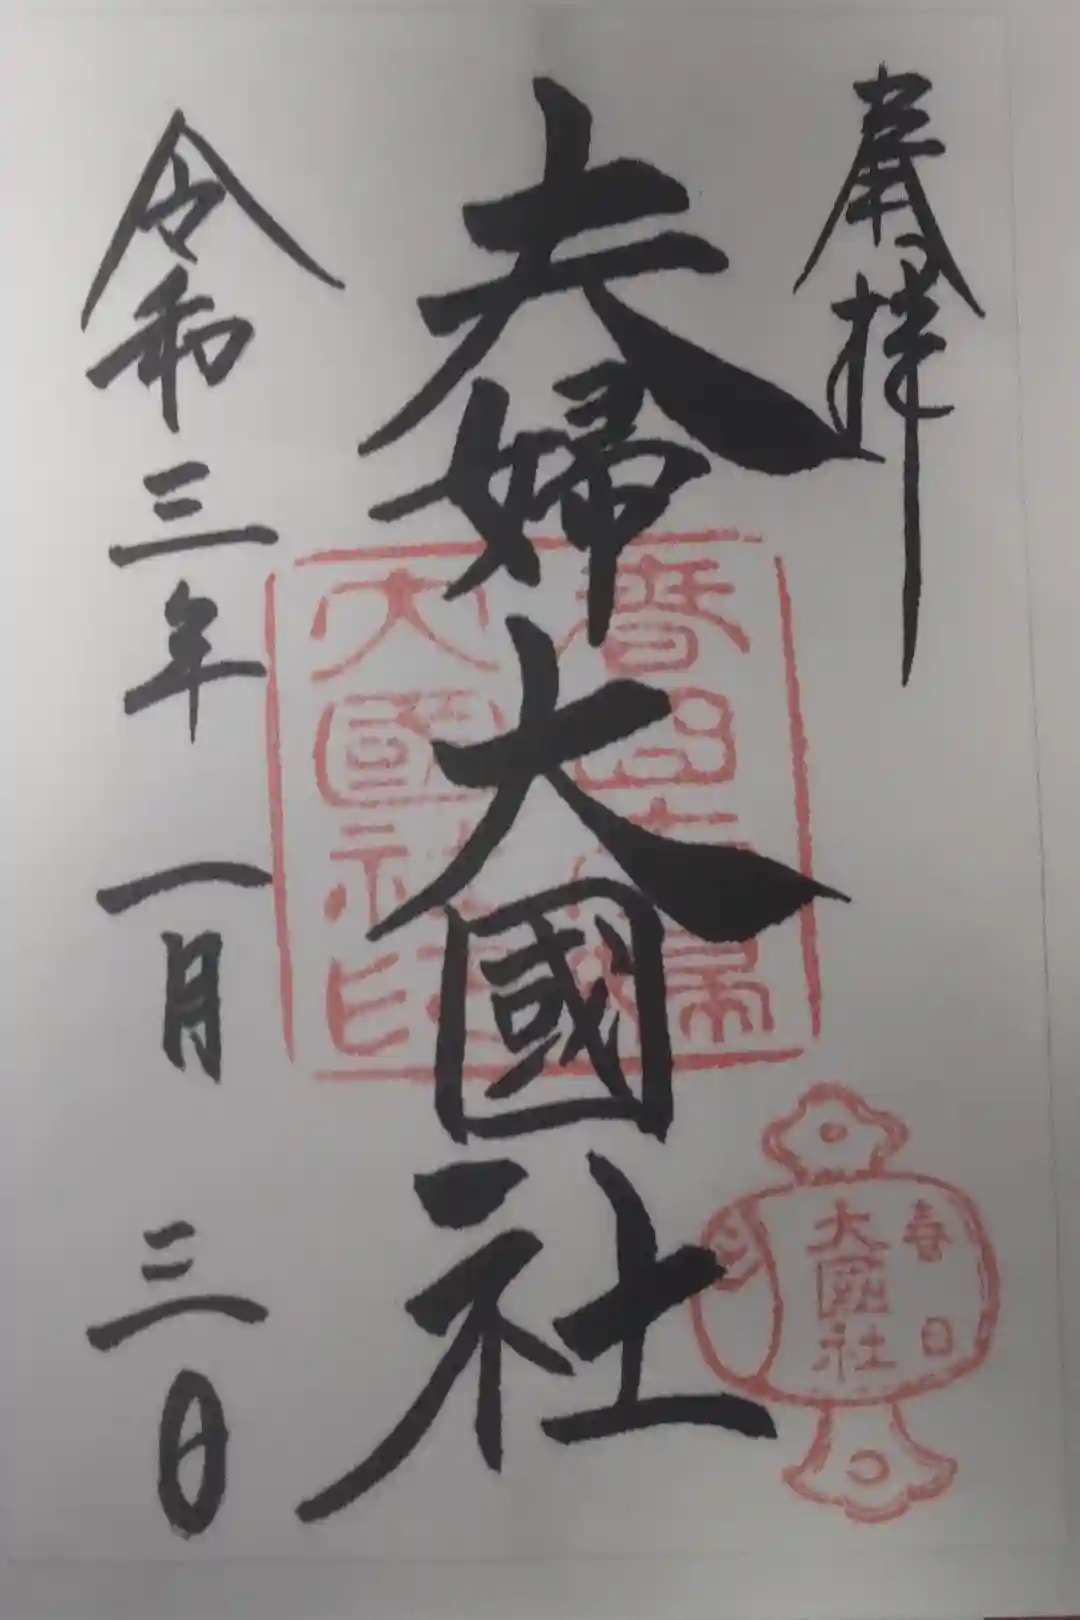 奉拝
夫婦大國社
令和三年一月三日
春日夫婦
大國社印
春日
大國社